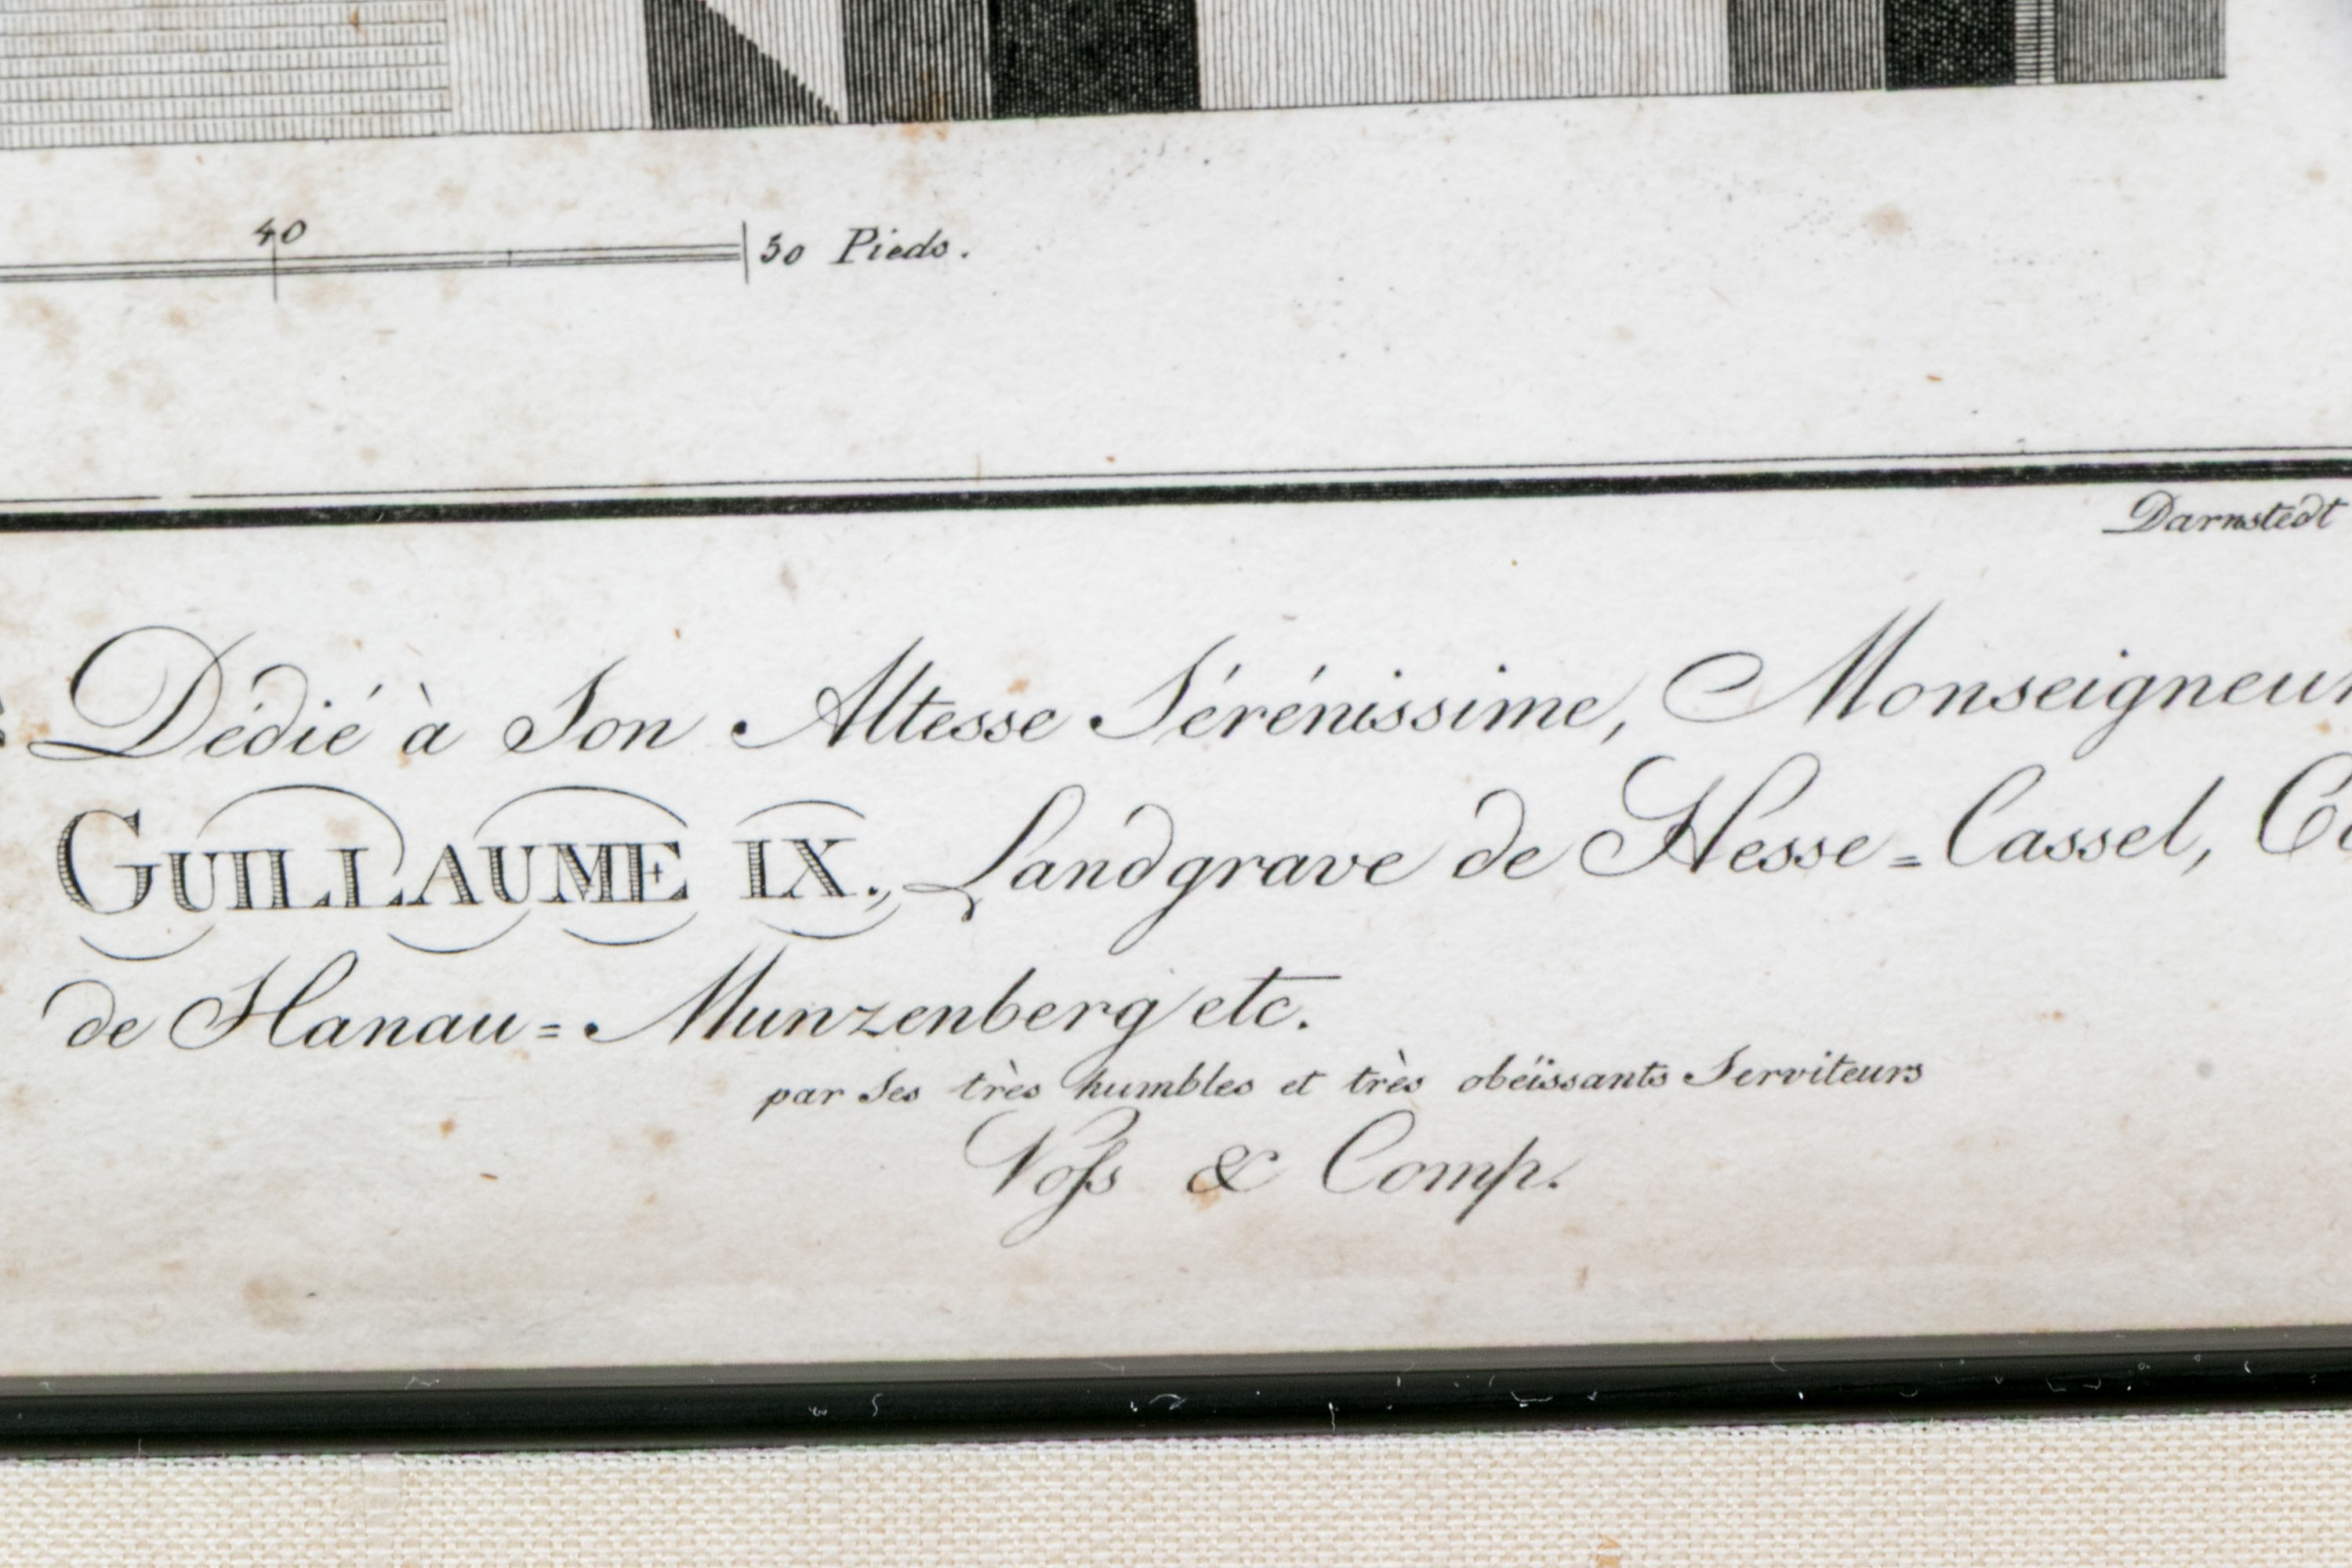 40
50 Pieds.
Darnstedt
Dédié à Son Altesse Sérénissime, Monseigneur
GUILLAUME IX., Landgrave de Hesse=Cassel,
de Hanau=Munzenberg etc.
par Ses très humbles et très obéissants Serviteurs
Voſs & Comp.